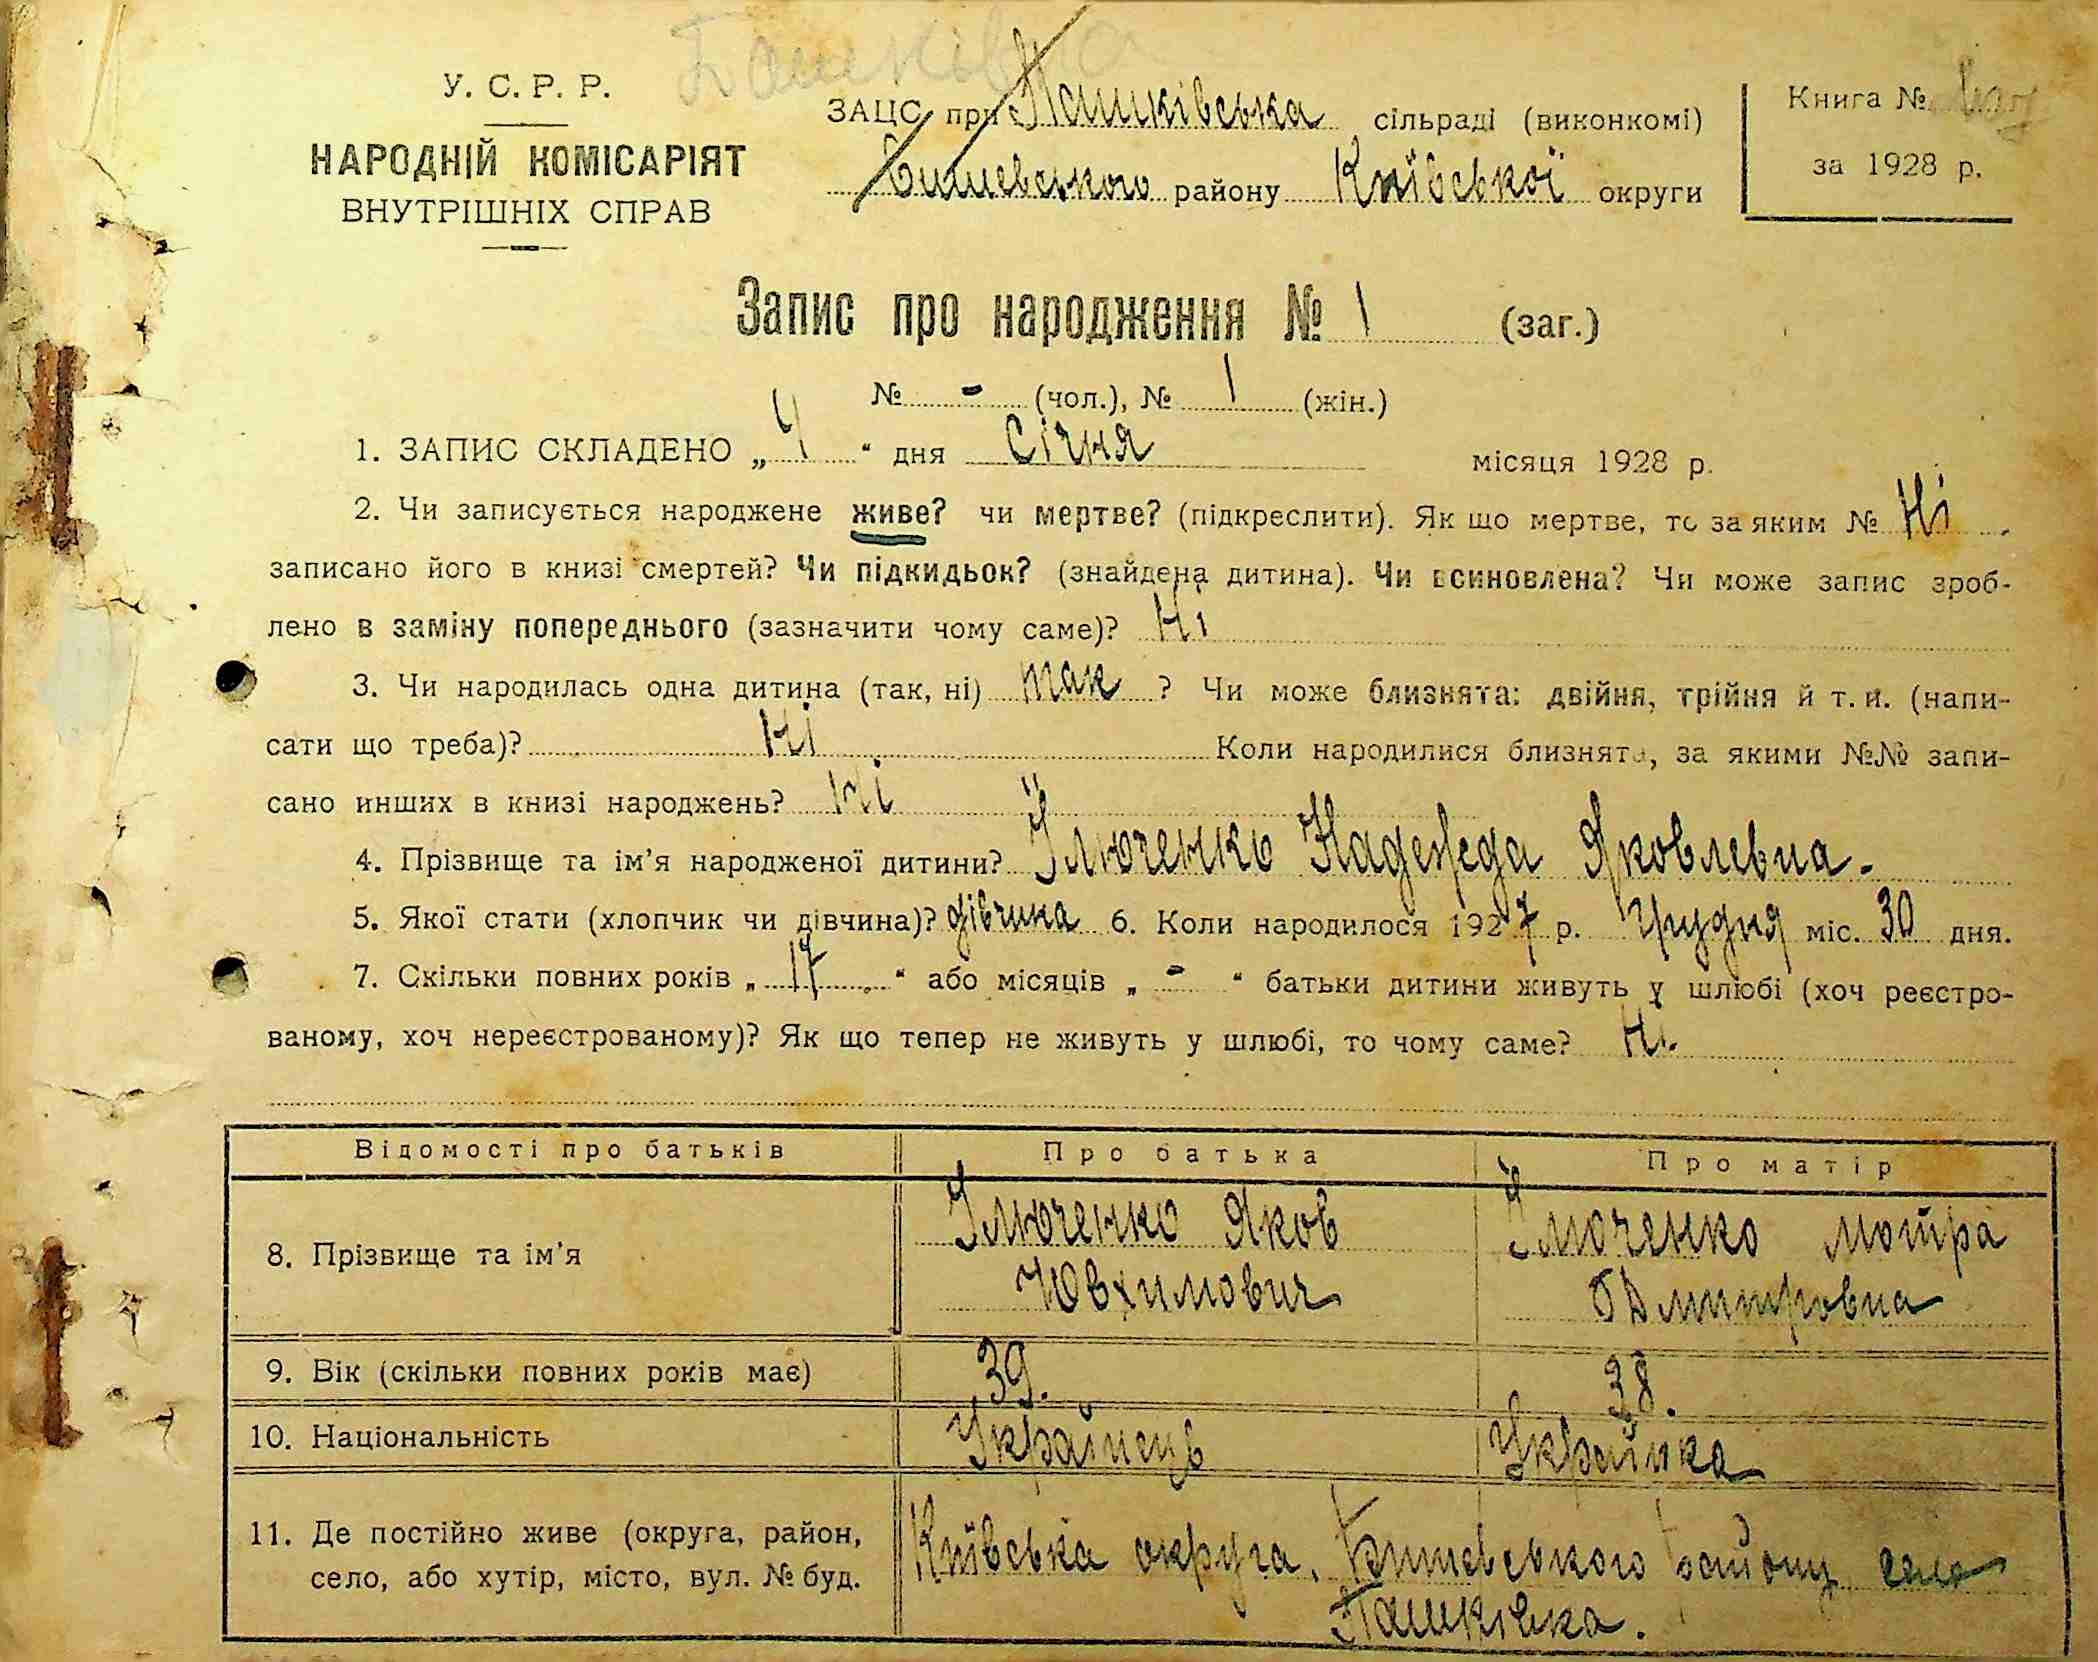 Пашківка
У. С. Р. Р.
НАРОДНІЙ КОМІСАРІЯТ
ВНУТРІШНІХ СПРАВ
ЗАЦС при Пашківська сільраді (виконкомі)
Бишевського району Київської округи
Книга №
за 1928 р.
Запис про народження № 1 (заг.)
№ - (чол.), № 1 (жін.)
1. ЗАПИС СКЛАДЕНО „ 4 “ дня Січня місяця 1928 р.
2. Чи записується народжене живе? чи мертве? (підкреслити). Як що мертве, то за яким № Ні .
записано його в книзі смертей? Чи підкидьок? (знайдена дитина). Чи всиновлена? Чи може запис зроб-
лено в заміну попереднього (зазначити чому саме)? Ні
3. Чи народилась одна дитина (так, ні) так ? Чи може близнята: двійня, трійня й т. и. (напи-
сати що треба)? Ні Коли народилися близнята, за якими №№ запи-
сано инших в книзі народжень? Ні
4. Прізвище та ім’я народженої дитини? Ілюченко Надежда Яковлевна.
5. Якої стати (хлопчик чи дівчина)? дівчина 6. Коли народилося 1927 р. Грудня міс. 30 дня.
7. Скільки повних років „ 17 “ або місяців „ - “ батьки дитини живуть у шлюбі (хоч реєстро-
ваному, хоч нереєстрованому)? Як що тепер не живуть у шлюбі, то чому саме? Ні.
Відомості про батьків Про батька Про матір
8. Прізвище та ім’я Ілюченко Яков Ілюченко Мотра
Ювхимович Дмитровна
9. Вік (скільки повних років має) 39. 38.
10. Національність Українець Українка
11. Де постійно живе (округа, район, Київська округа, Бишевського району село
село, або хутір, місто, вул. № буд. Пашківка.